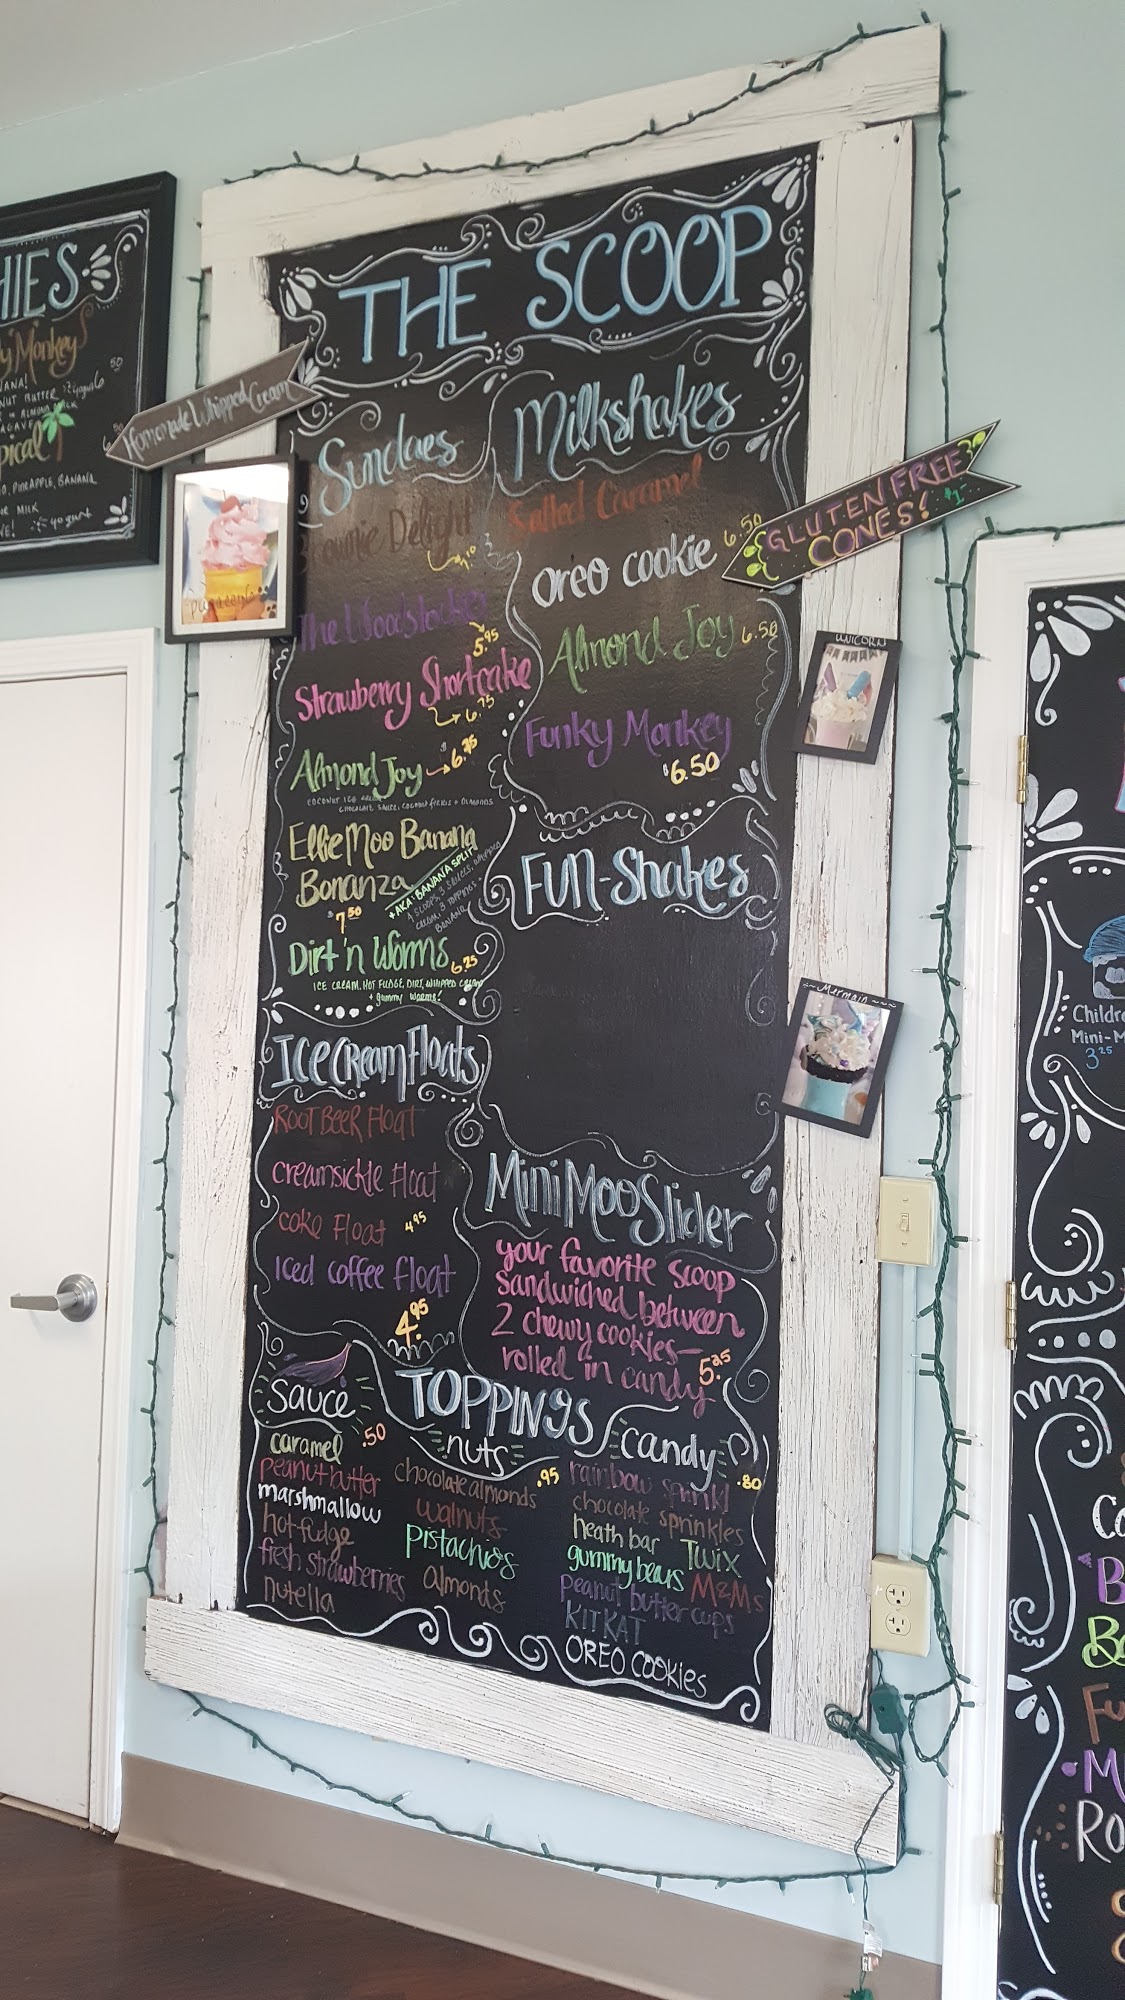 THE SCOOP
Homemade Whipped Cream
Sundaes
Brownie Delight
The Woodstocker
5.95
Strawberry Shortcake
6.75
Almond Joy
COCONUT ICE CREAM
CHOCOLATE SAUCE, COCONUT FLAKES + ALMONDS
Ellie Moo Banana
Bonanza
$7.50
*AKA: BANANA SPLIT
4 SCOOPS, 3 SAUCES, WHIPPED
CREAM, 3 TOPPINGS +
BANANA
Dirt 'n Worms
6.25
ICE CREAM, HOT FUDGE, DIRT, WHIPPED CREAM
+ gummy worms!
Ice Cream Floats
Root Beer Float
creamsickle Float
coke Float 4.95
Iced coffee float
4.95
Milkshakes
Salted Caramel
6.50
Oreo cookie
Almond Joy 6.50
Funky Monkey
$6.50
GLUTEN FREE
CONES!
Fun-Shakes
UNICORN
Mermaid
Mini Moo Slider
your favorite scoop
sandwiched between
2 chewy cookies-
rolled in candy 5.25
TOPPINGS
Sauce
.50
caramel
peanut butter
marshmallow
hot fudge
fresh strawberries
nutella
nuts
.95
chocolate almonds
walnuts
pistachios
almonds
candy
.80
rainbow sprinkl
chocolate sprinkles
heath bar Twix
gummy bears M&Ms
peanut butter cups
KIT KAT
OREO COOKIES
HIES
y Monkey
pical
O, PINEAPPLE, BANANA
OR MILK
yogurt
Childre
Mini-M
3.25